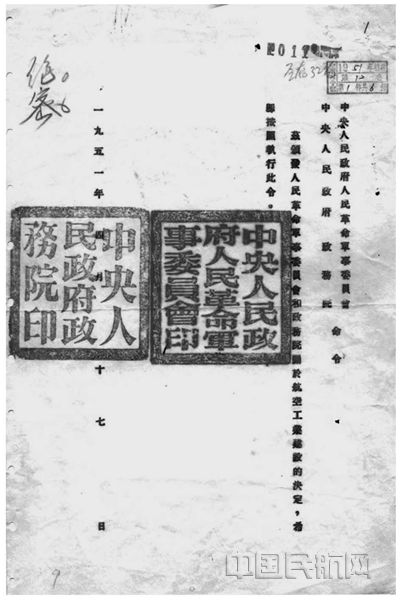 中央人民政府人民革命軍事委員會
中央人民政府政務院
命令
茲頒發人民革命軍事委員會和政務院關於航空工業建設的決定，希
即按照執行此令。
中央人民政府人民革命軍事委員會印
中央人民政府政務院印
一九五一年四月十七日
中国民航网